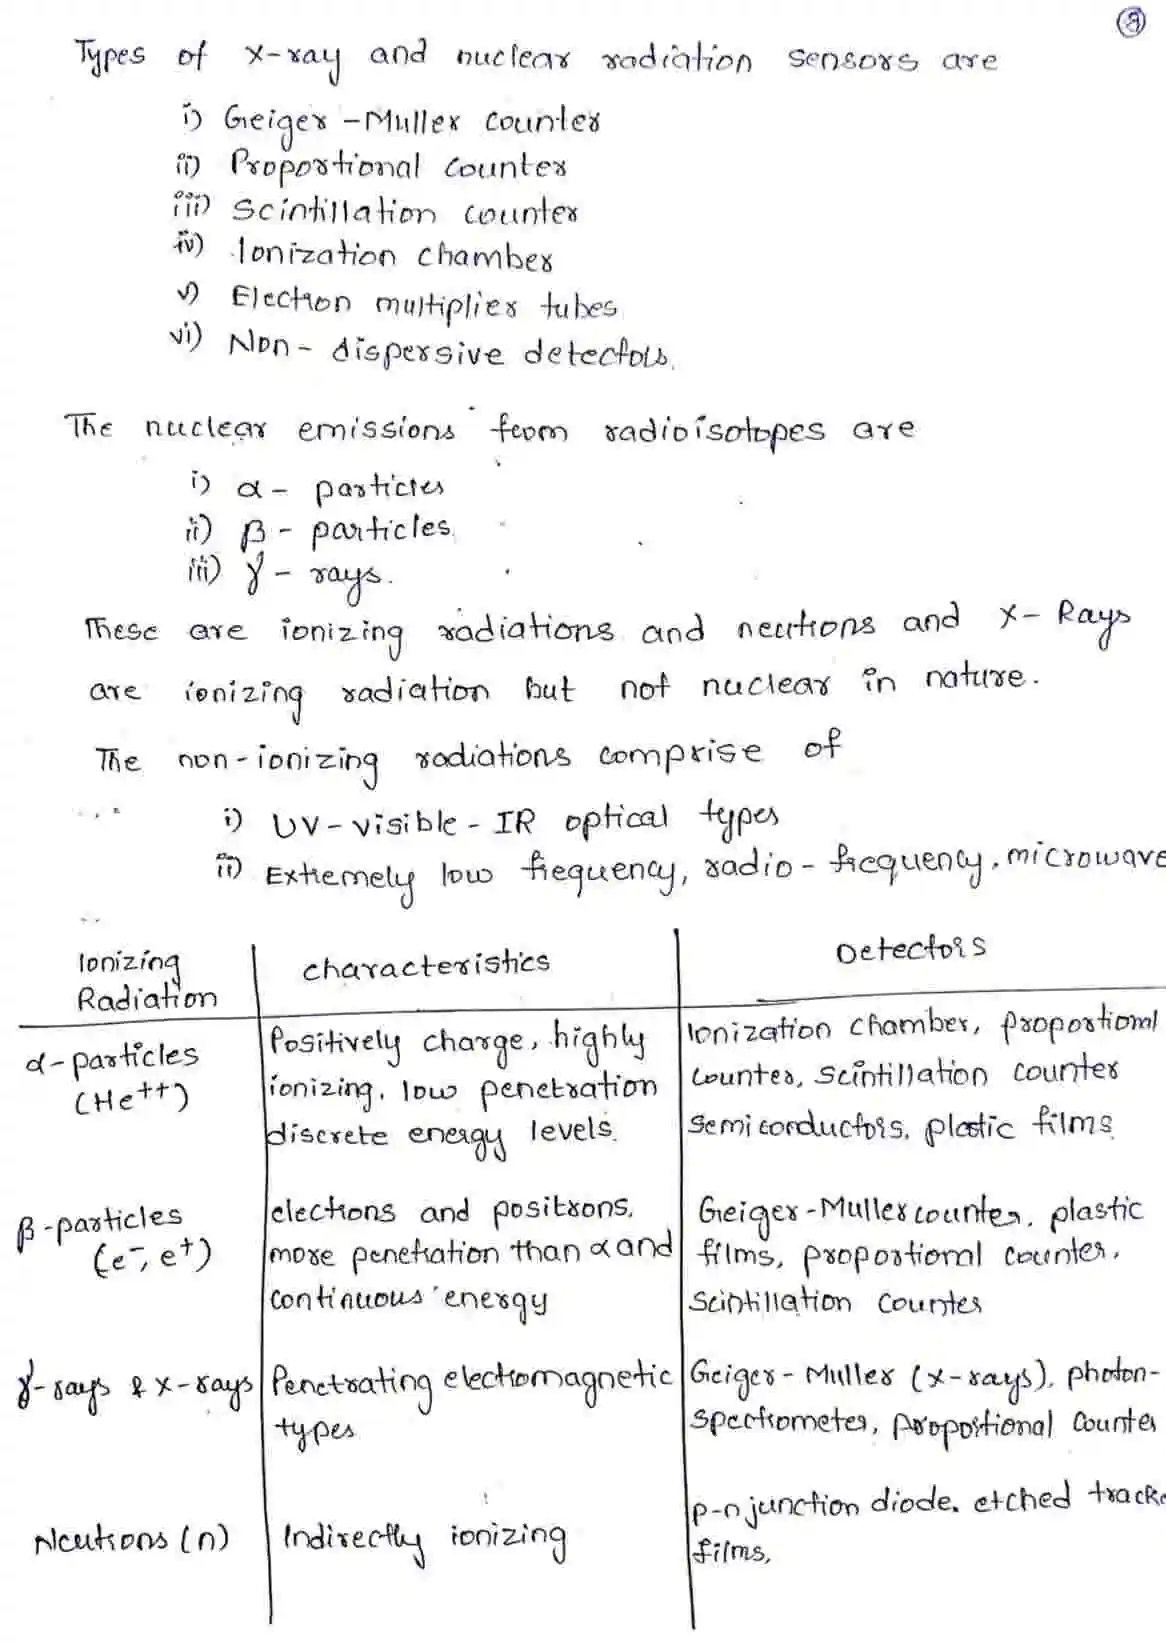 9
Types of x-ray and nuclear radiation sensors are
i) Geiger-Muller counter
ii) Proportional counter
iii) Scintillation counter
iv) Ionization chamber
v) Electron multiplier tubes
vi) Non-dispersive detectors.
The nuclear emissions from radioisotopes are
i) α- particles
ii) β- particles
iii) γ- rays.
These are ionizing radiations and neutrons and X-Rays
are ionizing radiation but not nuclear in nature.
The non-ionizing radiations comprise of
i) UV-visible-IR optical types
ii) Extremely low frequency, radio-frequency, microwave
Ionizing Radiation | characteristics | Detectors
α-particles (He++) | Positively charge, highly ionizing, low penetration discrete energy levels. | Ionization chamber, proportional counter, scintillation counter semiconductors, plastic films
β-particles (e-, e+) | electrons and positrons, more penetration than α and continuous energy | Geiger-Muller counter, plastic films, proportional counter, Scintillation counter
γ-rays & x-rays | Penetrating electromagnetic types | Geiger-Muller (x-rays), photon-spectrometer, proportional counter
Neutrons (n) | Indirectly ionizing | p-n junction diode. etched track films,